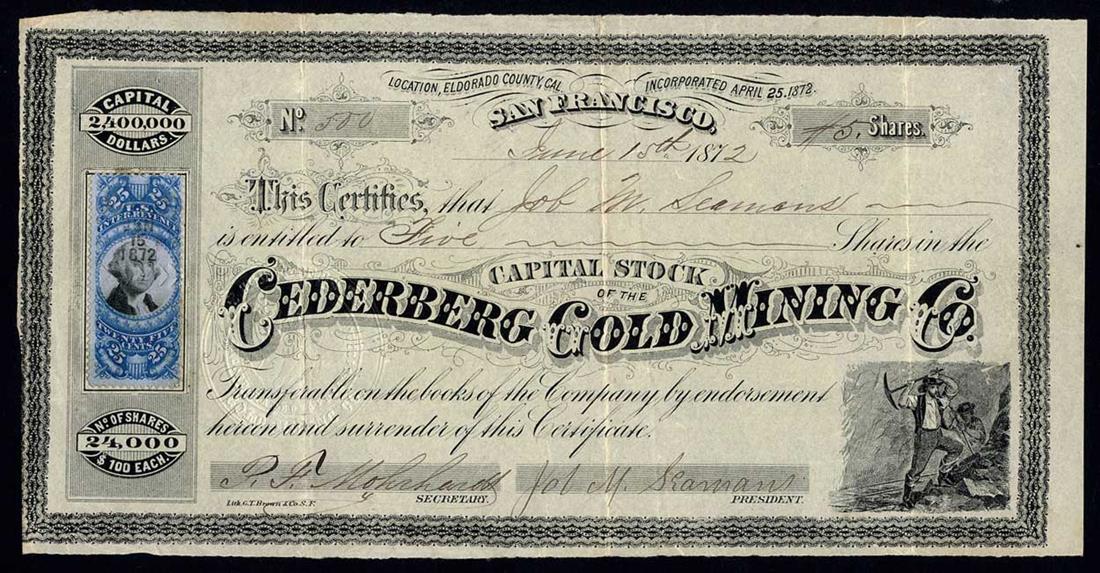 LOCATION, ELDORADO COUNTY, CAL. INCORPORATED APRIL 25. 1872.
SAN FRANCISCO,
No. 500
#5. Shares.
June 15th 1872
CAPITAL
2,400,000
DOLLARS.
This Certifies, that Job M. Seamans
is entitled to Five Shares in the
CAPITAL STOCK
OF THE
CEDERBERG GOLD MINING Co.
Transferable on the books of the Company by endorsement
hereon and surrender of this Certificate.
25 25
U.S.
INTER. REVENUE
15
1872
TWENTY FIVE
CENTS
25 25
No. OF SHARES
24,000
$100 EACH.
P. F. Mohrhardt
SECRETARY.
Job M. Seamans
PRESIDENT.
Lith. G.T. Brown & Co. S.F.